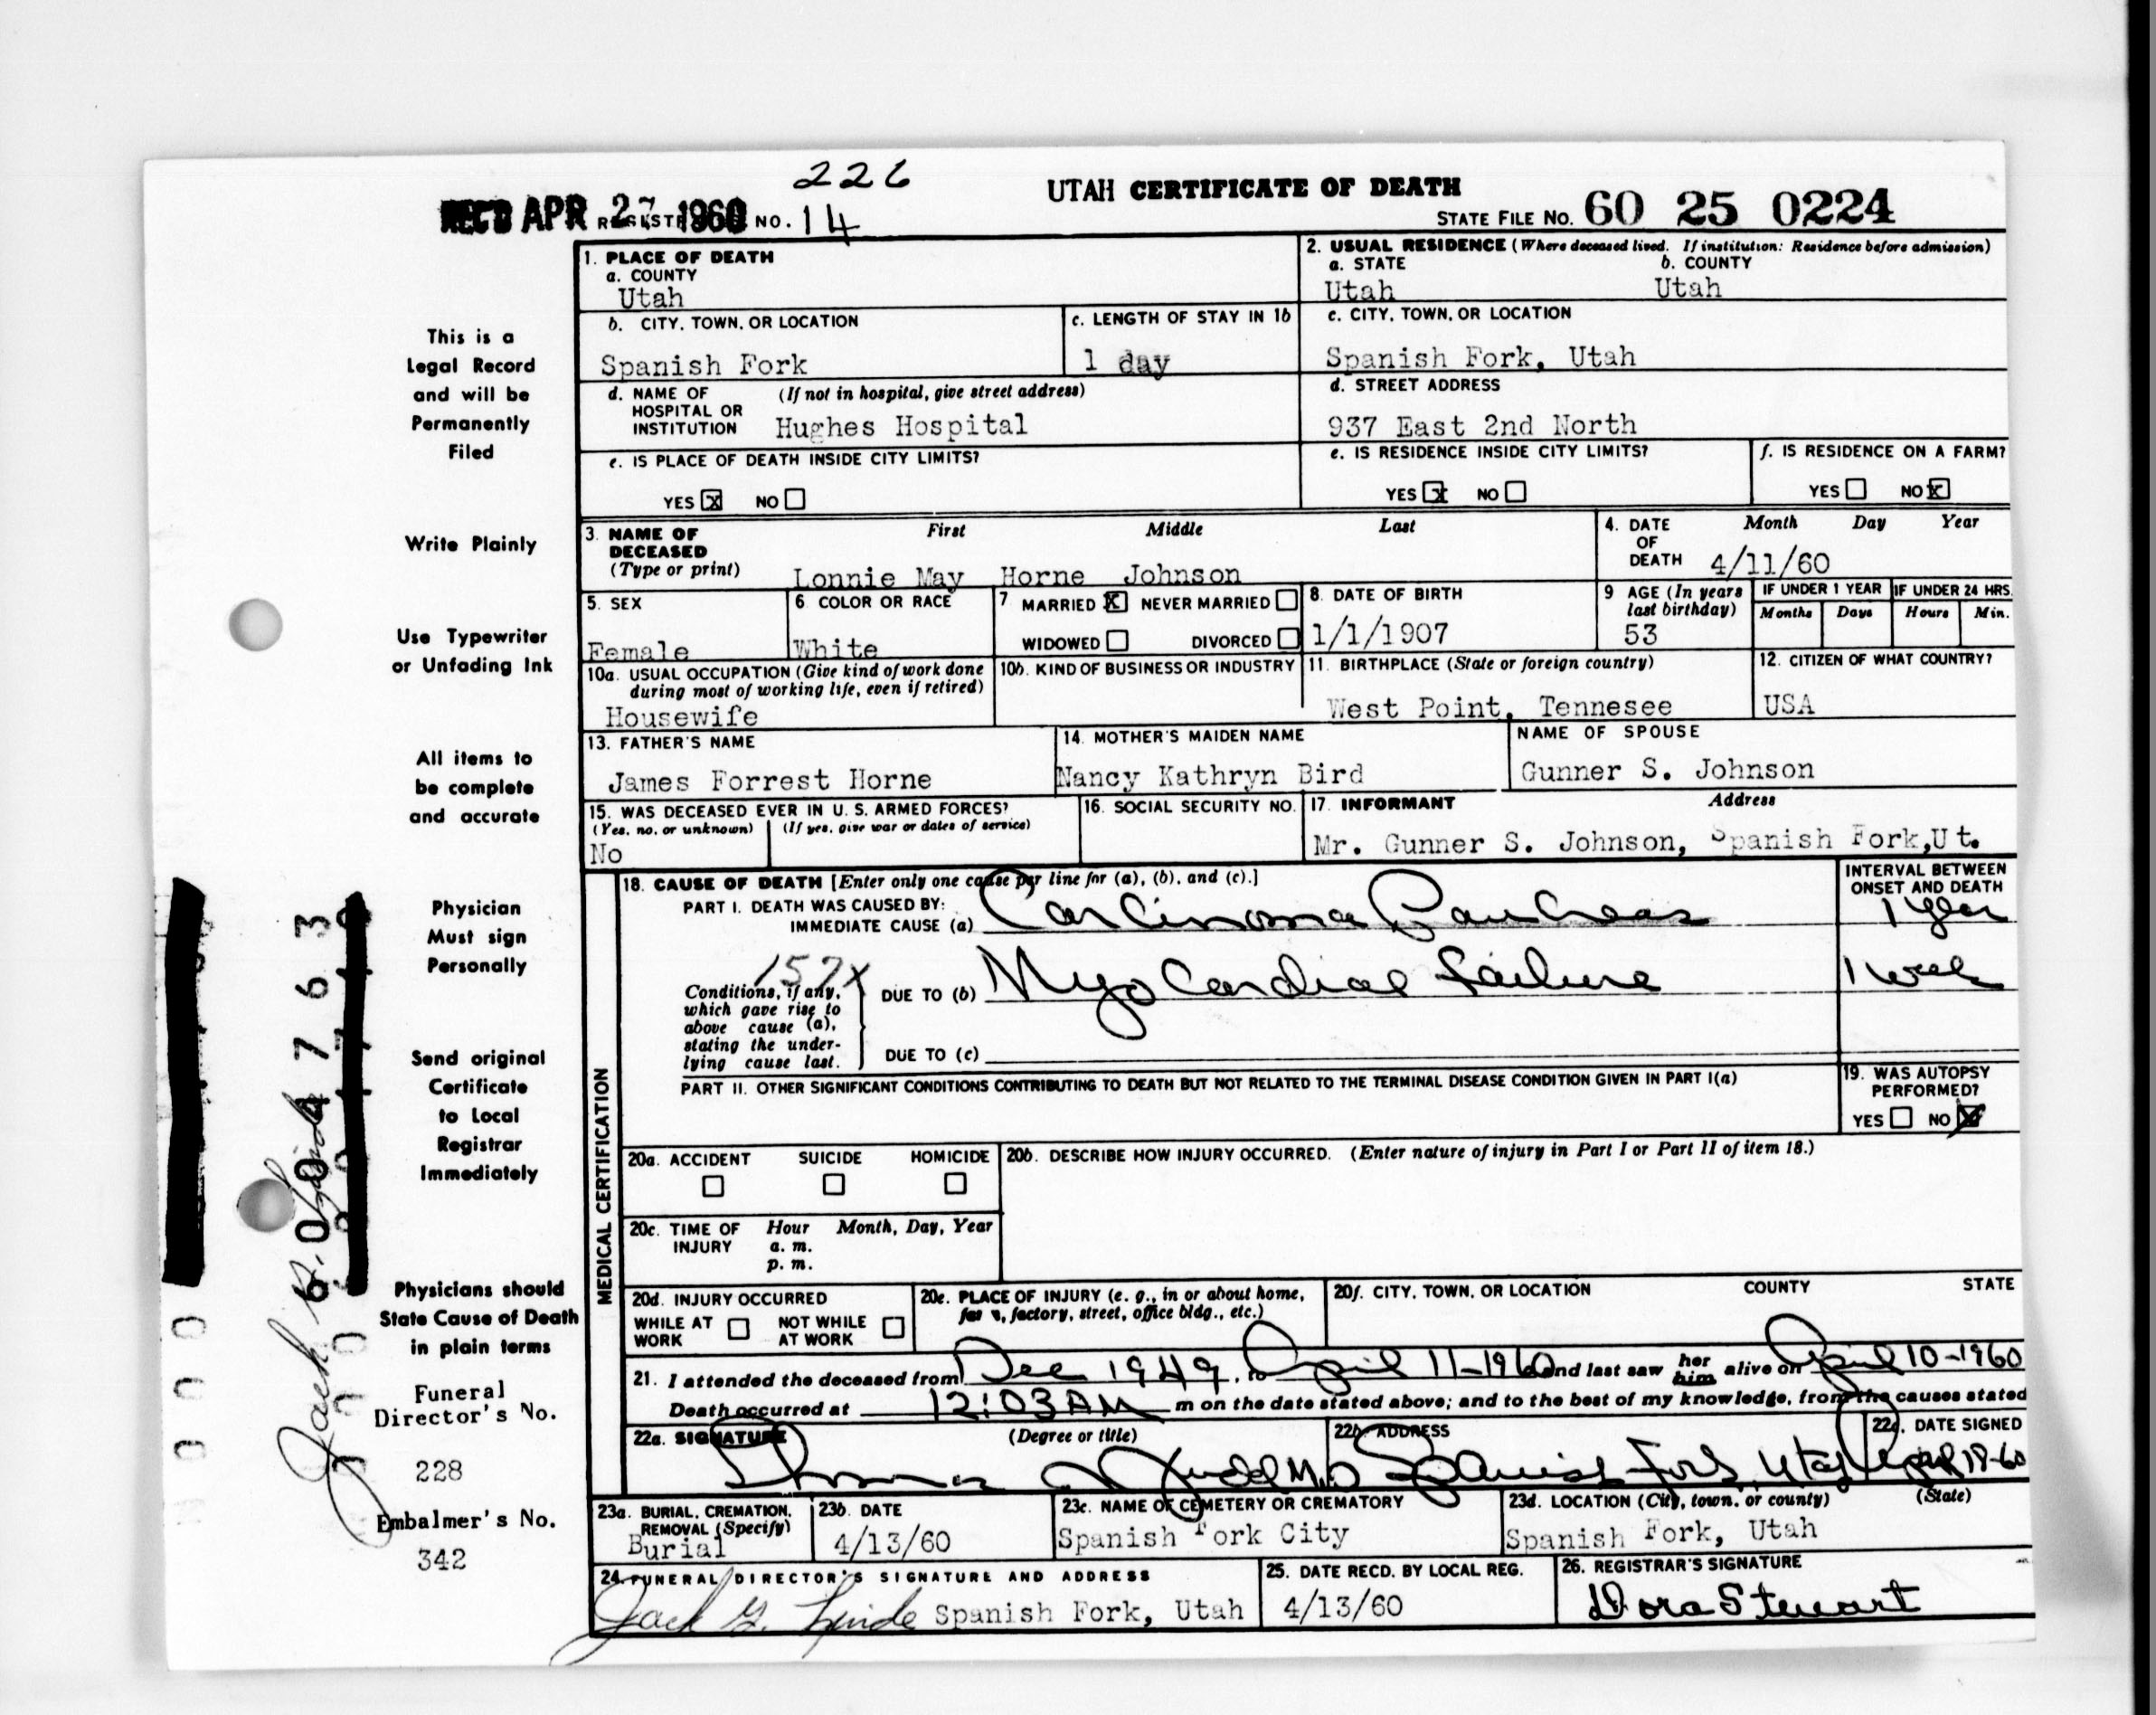 226
UTAH CERTIFICATE OF DEATH
REC'D APR 27 1960 NO. 14
STATE FILE NO. 60 25 0224
1. PLACE OF DEATH
a. COUNTY
Utah
2. USUAL RESIDENCE (Where deceased lived. If institution: Residence before admission)
a. STATE b. COUNTY
Utah Utah
b. CITY, TOWN, OR LOCATION
Spanish Fork
c. LENGTH OF STAY IN 1b
1 day
c. CITY, TOWN, OR LOCATION
Spanish Fork, Utah
d. NAME OF (If not in hospital, give street address)
HOSPITAL OR
INSTITUTION Hughes Hospital
d. STREET ADDRESS
937 East 2nd North
e. IS PLACE OF DEATH INSIDE CITY LIMITS?
YES X NO
e. IS RESIDENCE INSIDE CITY LIMITS?
YES X NO
f. IS RESIDENCE ON A FARM?
YES NO X
3. NAME OF First Middle Last
DECEASED
(Type or print) Lonnie May Horne Johnson
4. DATE Month Day Year
OF
DEATH 4/11/60
5. SEX
Female
6. COLOR OR RACE
White
7 MARRIED X NEVER MARRIED
WIDOWED DIVORCED
8. DATE OF BIRTH
1/1/1907
9 AGE (In years
last birthday)
53
IF UNDER 1 YEAR
Months Days
IF UNDER 24 HRS.
Hours Min.
10a. USUAL OCCUPATION (Give kind of work done
during most of working life, even if retired)
Housewife
10b. KIND OF BUSINESS OR INDUSTRY
11. BIRTHPLACE (State or foreign country)
West Point, Tennesee
12. CITIZEN OF WHAT COUNTRY?
USA
13. FATHER'S NAME
James Forrest Horne
14. MOTHER'S MAIDEN NAME
Nancy Kathryn Bird
NAME OF SPOUSE
Gunner S. Johnson
15. WAS DECEASED EVER IN U. S. ARMED FORCES?
(Yes, no, or unknown) (If yes, give war or dates of service)
No
16. SOCIAL SECURITY NO.
17. INFORMANT Address
Mr. Gunner S. Johnson, Spanish Fork,Ut.
MEDICAL CERTIFICATION
18. CAUSE OF DEATH [Enter only one cause per line for (a), (b), and (c).]
PART I. DEATH WAS CAUSED BY:
IMMEDIATE CAUSE (a) Carcinoma Pancreas
INTERVAL BETWEEN
ONSET AND DEATH
1 year
157X
Conditions, if any,
which gave rise to
above cause (a),
stating the under-
lying cause last.
DUE TO (b) Myocardial failure
1 week
DUE TO (c)
PART II. OTHER SIGNIFICANT CONDITIONS CONTRIBUTING TO DEATH BUT NOT RELATED TO THE TERMINAL DISEASE CONDITION GIVEN IN PART I(a)
19. WAS AUTOPSY
PERFORMED?
YES NO X
20a. ACCIDENT SUICIDE HOMICIDE
20b. DESCRIBE HOW INJURY OCCURRED. (Enter nature of injury in Part I or Part II of item 18.)
20c. TIME OF Hour Month, Day, Year
INJURY a. m.
p. m.
20d. INJURY OCCURRED
WHILE AT NOT WHILE
WORK AT WORK
20e. PLACE OF INJURY (e. g., in or about home,
farm, factory, street, office bldg., etc.)
20f. CITY, TOWN, OR LOCATION COUNTY STATE
21. I attended the deceased from Dec 1949, to April 11-1960 and last saw her him alive on April 10-1960
Death occurred at 12:03 AM m on the date stated above; and to the best of my knowledge, from the causes stated
22a. SIGNATURE (Degree or title)
M.D.
22b. ADDRESS
Spanish Fork, Utah
22c. DATE SIGNED
April 18-60
23a. BURIAL, CREMATION,
REMOVAL (Specify)
Burial
23b. DATE
4/13/60
23c. NAME OF CEMETERY OR CREMATORY
Spanish Fork City
23d. LOCATION (City, town, or county) (State)
Spanish Fork, Utah
24. FUNERAL DIRECTOR'S SIGNATURE AND ADDRESS
Jack Spanish Fork, Utah
25. DATE RECD. BY LOCAL REG.
4/13/60
26. REGISTRAR'S SIGNATURE
Dora Stewart
This is a
Legal Record
and will be
Permanently
Filed
Write Plainly
Use Typewriter
or Unfading Ink
All items to
be complete
and accurate
Physician
Must sign
Personally
Send original
Certificate
to Local
Registrar
Immediately
Physicians should
State Cause of Death
in plain terms
Funeral
Director's No.
228
Embalmer's No.
342
Jack